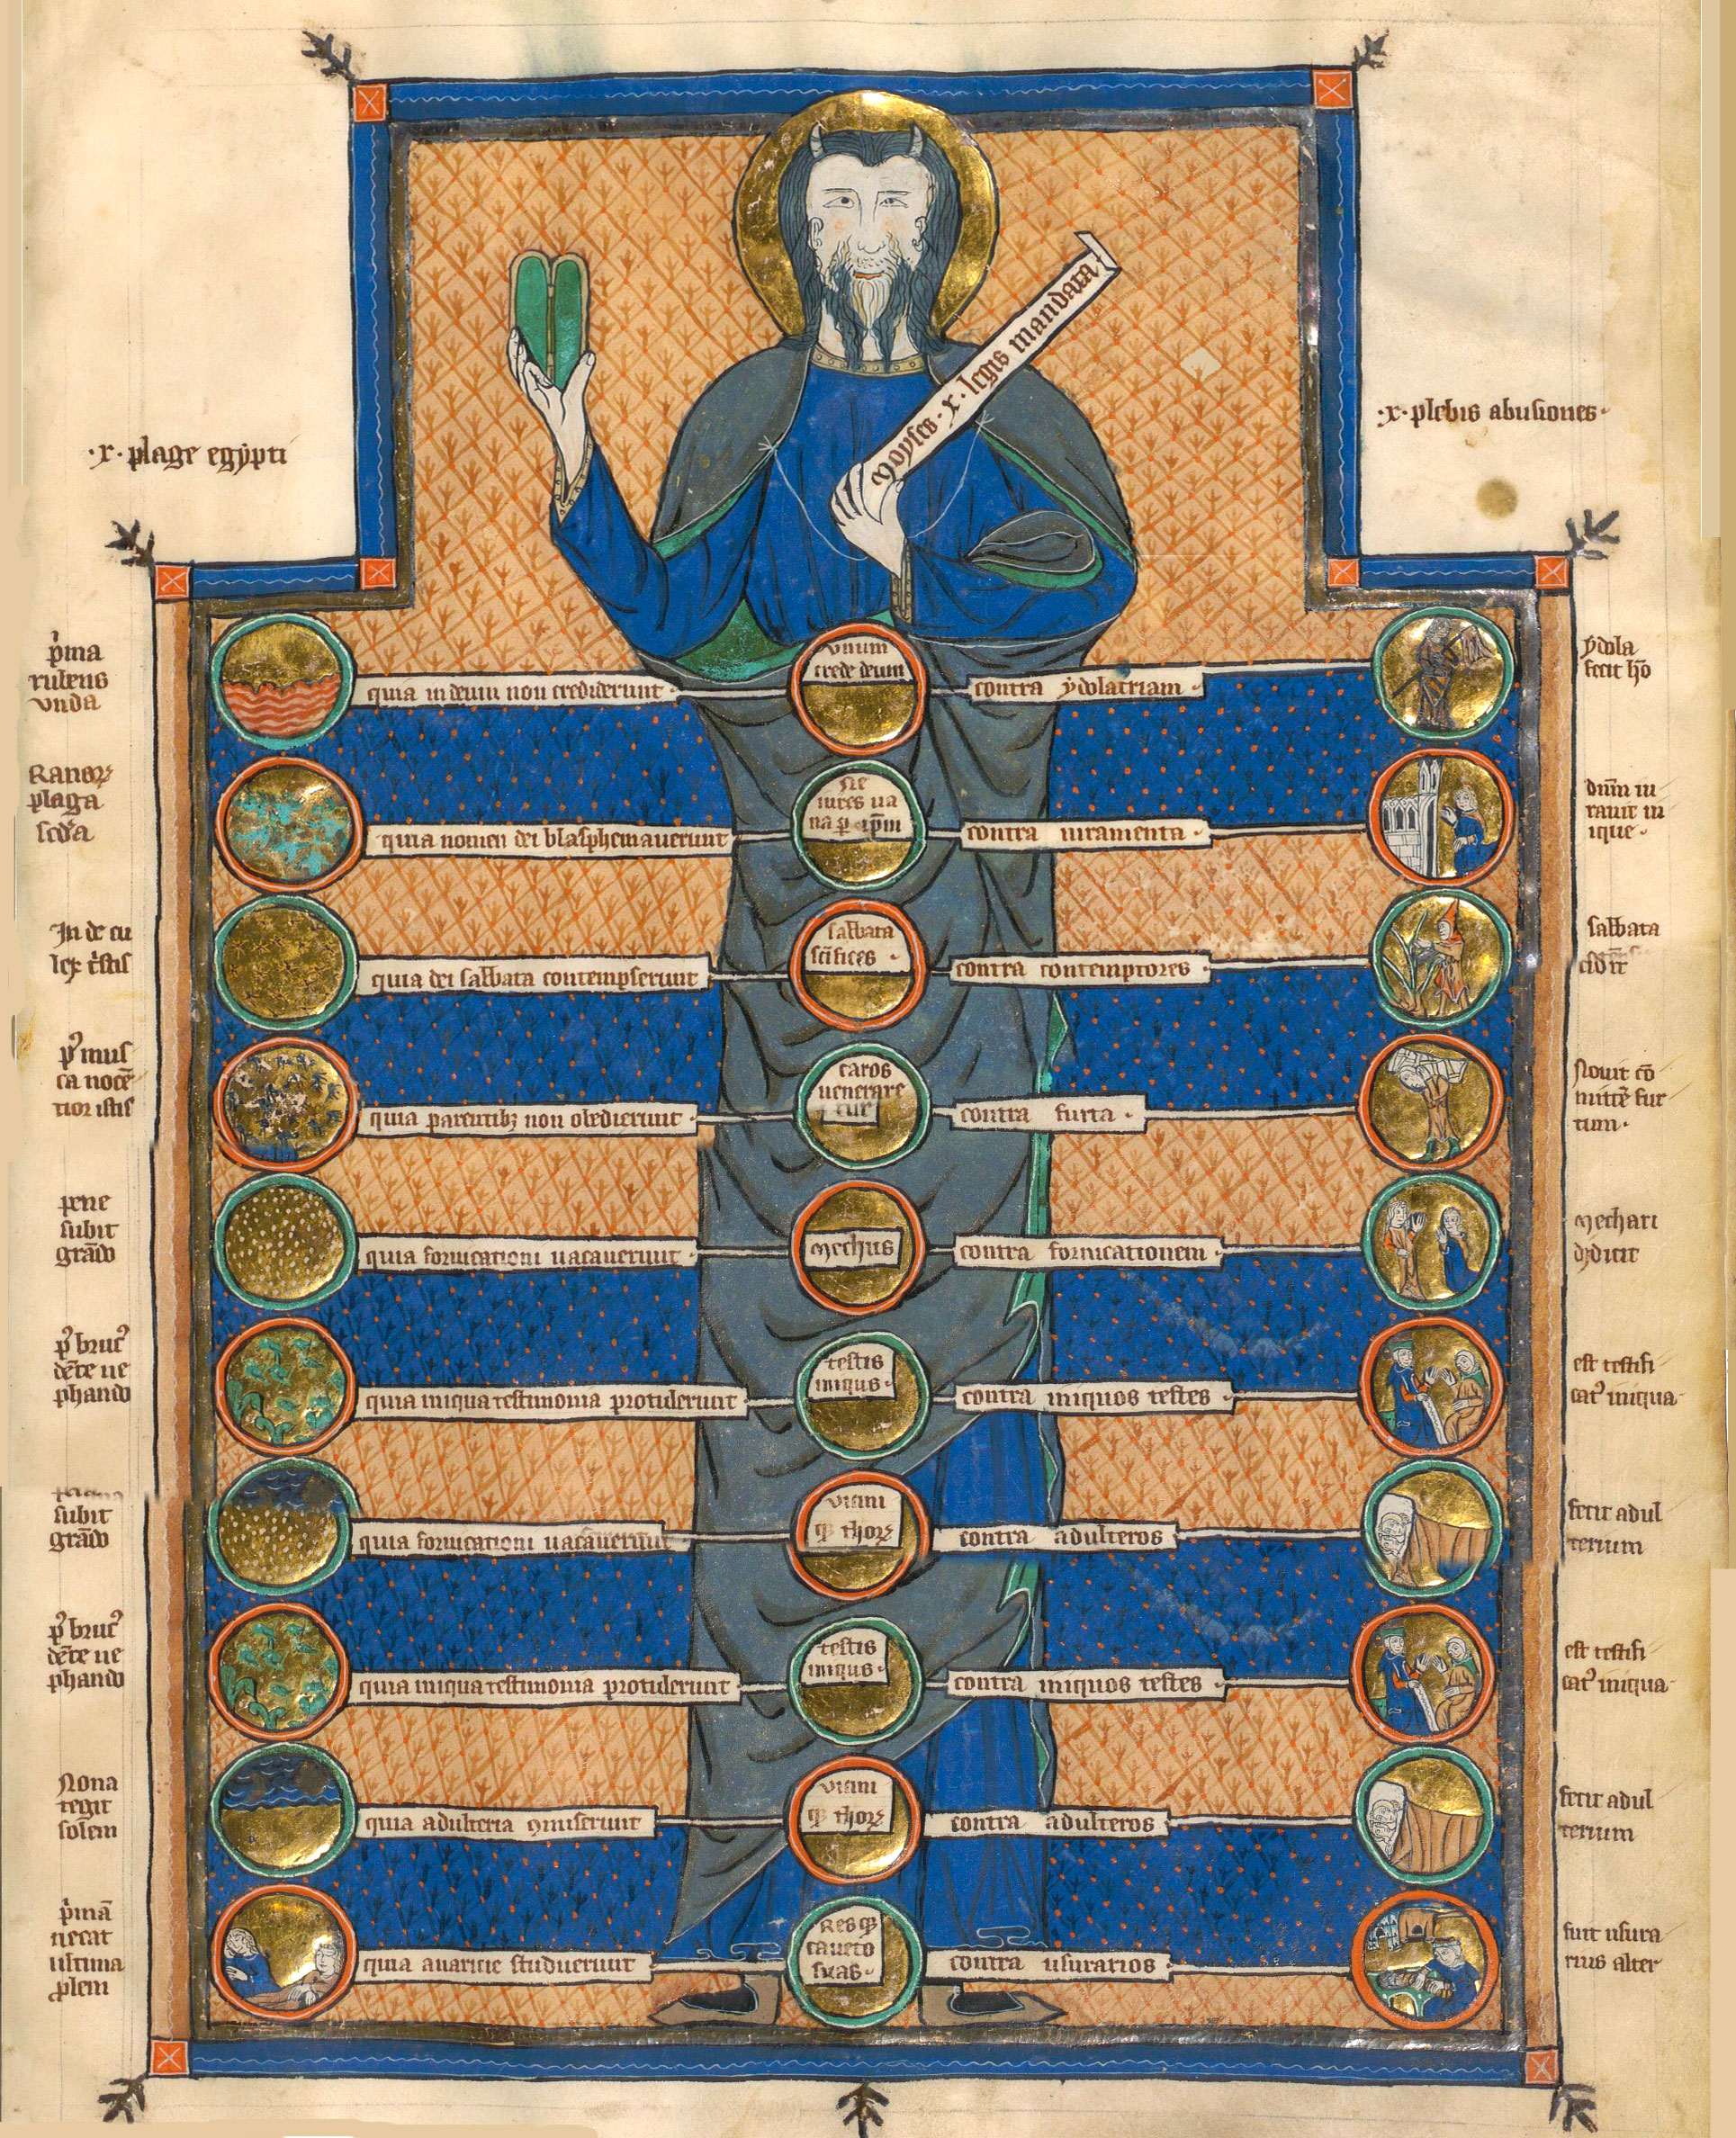 moyses · x · legis mandata
· x · plebis abusiones ·
· x · plage egypti
p'ma
rubens
vnda
quia in deum non crediderunt ·
vnum
crede deum
contra ydolatriam ·
ydola
fecit
plaga
quia nomen dei blasphemauerunt
Ne
iures ua
contra iuramenta ·
rauit in
ique ·
In de cu
quia dei sabbata contempserunt
sabbata
sc̄ifices ·
contra contemptores ·
sabbata
p' mus
ca nocē
tior istis
quia parentibꝫ non obedierunt ·
caros
uenerare
tue
contra furta ·
Nouit cō
mittē fur
tum ·
pene
subit
grādo
quia fornicationi uacauerunt ·
mechus
contra fornicationem ·
mechari
p' bruc'
dēte ne
phando
quia iniqua testimonia protulerunt ·
testis
iniqus ·
contra iniquos testes ·
est testifi
cat' iniqua ·
subit
grādo
quia fornicationi uacauerunt
viam
contra adulteros ·
fecit adul
terium
p' bruc'
dēte ne
phando
quia iniqua testimonia protulerunt ·
testis
iniqus ·
contra iniquos testes ·
est testifi
cat' iniqua ·
Nona
tegit
solem
quia adulteria ꝯmiserunt ·
viam
contra adulteros ·
fecit adul
terium
p'mā
necat
ultima
plem
quia auaricie studuerunt ·
Resqꝫ
caueto
suas ·
contra usurarios ·
fuit usura
rius alter